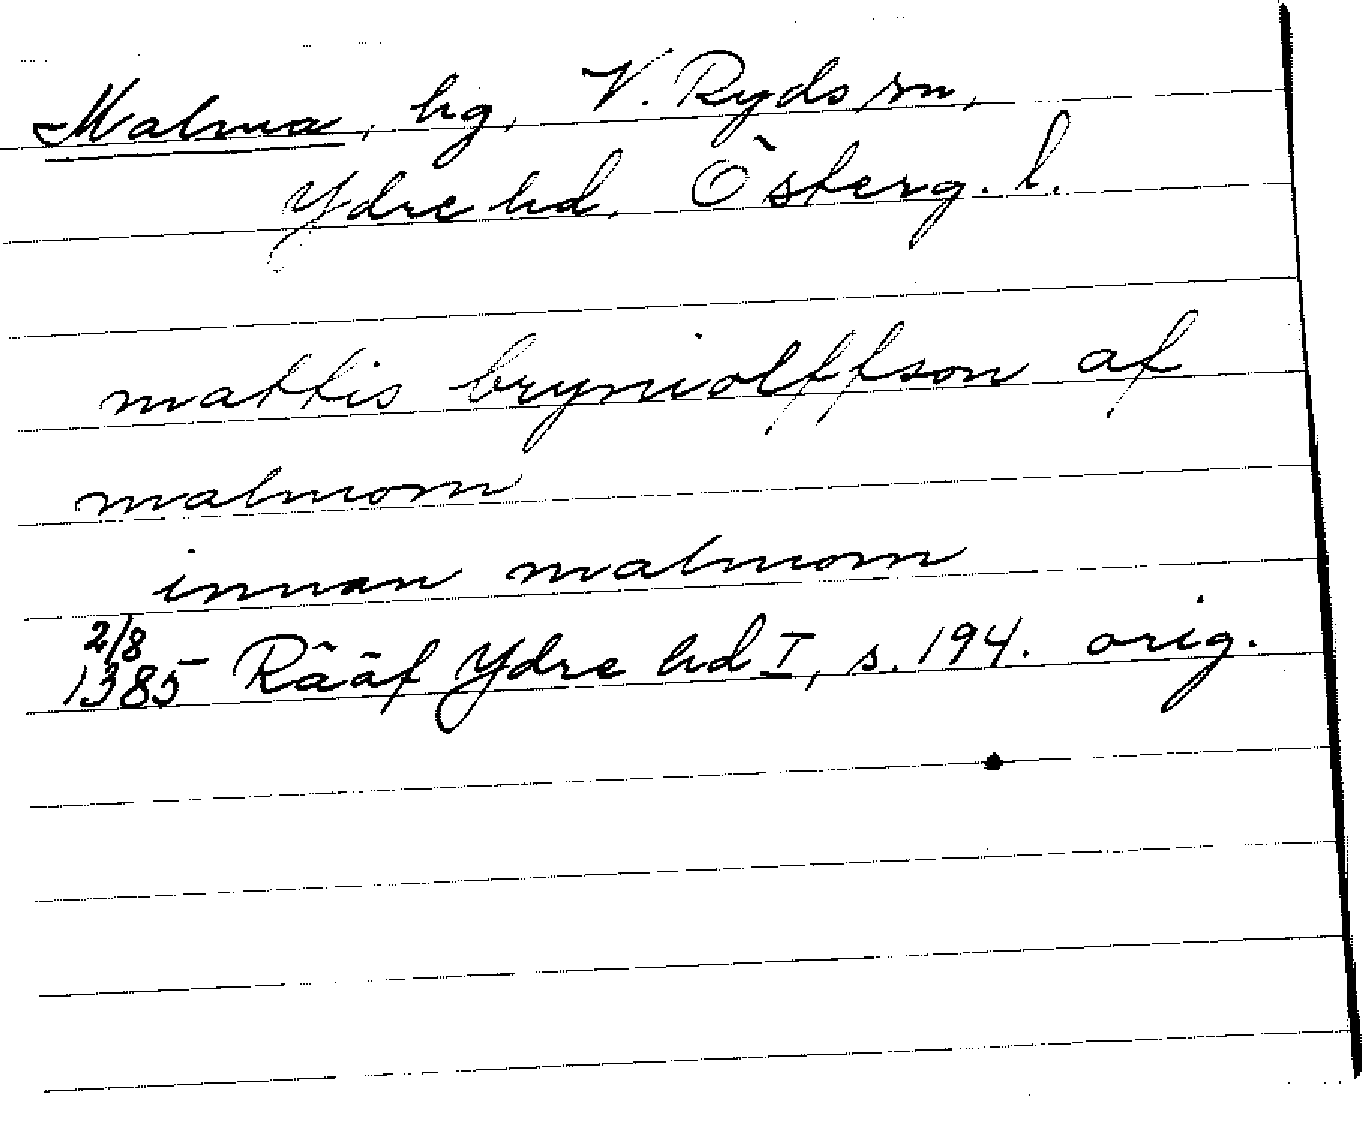 Malma, hg, V. Ryds sn,
Ydre hd. Österg. l.
mattis bryniolffson af
malmom
innan malmom
2/8
1385 Rääf Ydre hd I, s. 194. orig.